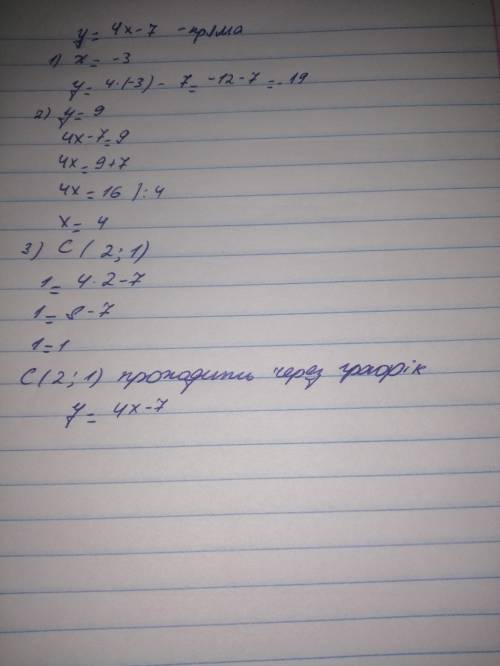 y = 4x - 7 - пряма
1) x = -3
y = 4·(-3) - 7 = -12 - 7 = -19
2) y = 9
4x - 7 = 9
4x = 9 + 7
4x = 16 |: 4
x = 4
3) C (2; 1)
1 = 4·2 - 7
1 = 8 - 7
1 = 1
C (2; 1) проходить через графік
y = 4x - 7